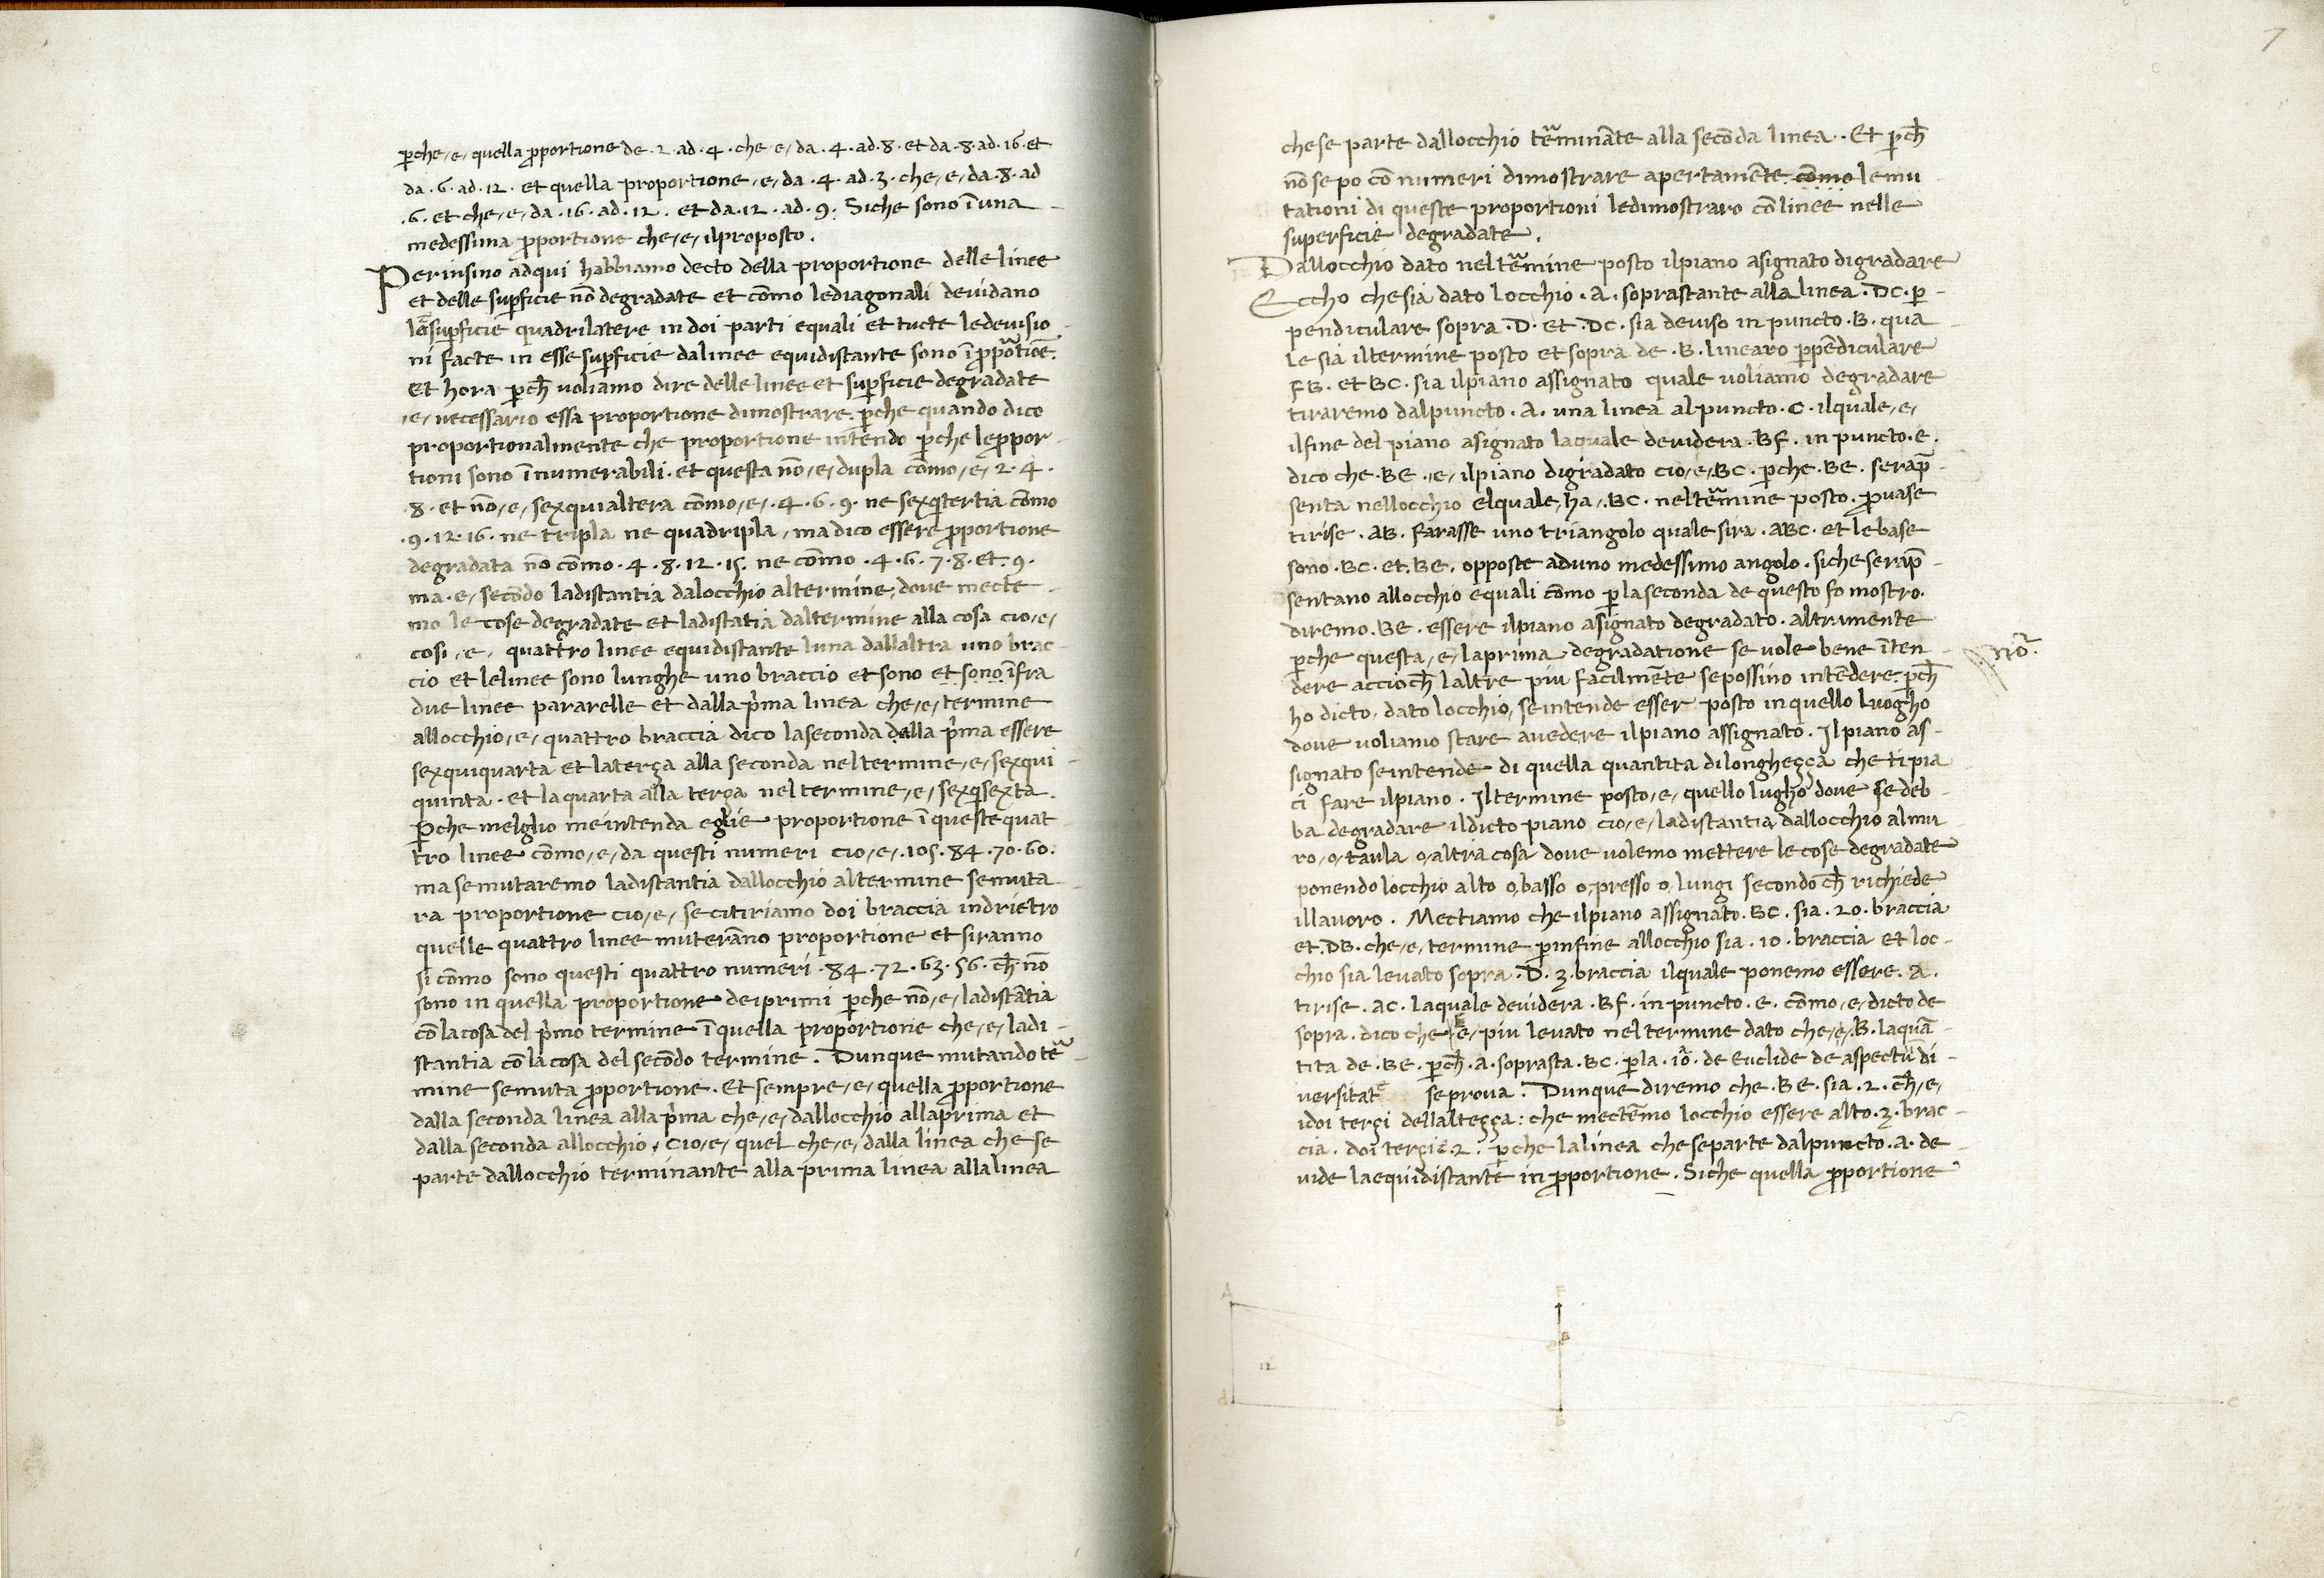 ꝑche, e, quella proportione de .2. ad .4. che e, da .4. ad .8. et da .8. ad .16. et
da .6. ad .12. et quella proportione, e, da .4. ad .3. che, e, da .8. ad
.6. et che, e, da .16. ad .12. et da .12. ad .9. Siche sono ī una
medessima proportione che, e, ilproposto.
Perinsino adqui habbiamo decto della proportione delle linee
et delle suꝑficie nō degradate et cōmo lediagonali devidano
le suꝑficie quadrilatere in doi parti equali et tucte ledevisio
ni facte in esse suꝑficie dalinee equidistante sono ī proportiōe.
Et hora ꝑch̄ voliamo dire delle linee et suꝑficie degradate
, e, necessario essa proportione dimostrare. ꝑche quando dico
proportionalmente che proportione intēndo ꝑche le propor
tioni sono īnumerabili. et questa nō, e, dupla cōmo, e, 2. 4.
8. et nō, e, sexquialtera cōmo, e, .4. 6. 9. ne sexq̄tertia cōmo
.9. 12. 16. ne tripla ne quadripla, ma dico essere proportione
degradata nō cōmo .4. 8. 12. 15. ne cōmo .4. 6. 7. 8. et .9.
ma. e, secōdo ladistantia dalocchio altermine, dove mecte
mo le cose degradate et ladistatia daltermine alla cosa cio, e,
cosi, e, quattro linee equidistante luna dallaltra uno brac
cio et lelinee sono lunghe uno braccio et sono et sono īfra
due linee pararelle et dalla p̄ma linea che, e, termine
allocchio, e, quattro braccia dico laseconda della p̄ma essere
sexquiquarta et laterça alla seconda nel termine, e, sexqui
quinta. et laquarta alla terça nel termine, e, sexq̄sexta.
Ꝑche melglio me intenda eglie proportione ī queste quat
tro linee cōmo, e, da questi numeri cio, e, .105. 84. 70. 60.
ma semutaremo ladistantia dallocchio altermine semuta
ra proportione cio, e, secitiriamo doi braccia indrietro
quelle quattro linee muterāno proportione et siranno
si cōmo sono questi quattro numeri .84. 72. 63. 56. ch̄ nō
sono in quella proportione deiprimi ꝑche nō, e, ladistātia
cō lacosa del p̄mo termine ī quella proportione che, e, ladi
stantia cō lacosa del secōdo termine. Dunque mutando tē
mine semuta proportione. Et sempre, e, quella proportione
dalla seconda linea alla p̄ma che, e, dallocchio allaprima et
dalla seconda allocchio, cio, e, quel che, e, dalla linea che se
parte dallocchio terminante alla prima linea allalinea
7
chese parte dallocchio tēmināte alla secōda linea. Et ꝑch̄
nō se po cō numeri dimostrare apertamēte cōmo lemu
tationi di queste proportioni ledimostraro cō linee nelle
superficie degradate.
Dallocchio dato nel tēmine posto ilpiano asignato digradare
Eccho che sia dato locchio .A. soprastante alla linea .DC. ꝑ
pendiculare sopra .D. et .DC. sia deviso in puncto .B. qua
le sia il termine posto et sopra de .B. linearo ꝑpēdiculare
FB. et BC. sia ilpiano assignato quale voliamo degradare
tiraremo dalpuncto .A. una linea al puncto .C. ilquale, e,
ilfine del piano asignato laquale devidera .BF. in puncto .E.
dico che .BE. , e, ilpiano digradato cio, e, BC. ꝑche .BE. serap̄
senta nellocchio elquale, ha, BC. neltēmine posto. provase
tirise .AB. farasse uno triangolo quale sira .ABC. et lebase
sono .BC. et .BE. opposte aduno medessimo angolo. siche serap̄
sentano allocchio equali cōmo ꝑ laseconda de questo fo mostro.
diremo .BE. essere ilpiano asignato degradato. altrimente
ꝑche questa, e, laprima degradatione se vole bene īten
dere accioch̄ laltre piu facilmēte sepossino intēdere. ꝑch̄
ho dicto, dato locchio, seintende esser posto in quello luogho
dove voliamo stare avedere ilpiano assignato. Il piano as
signato seintende di quella quantita dilongheçça che tipia
ci fare ilpiano. Il termine posto, e, quello lugho dove se deb
ba degradare ildicto piano cio, e, ladistantia dallocchio almu
ro, o, taula o, altra cosa dove volemo mettere le cose degradate
ponendo locchio alto o, basso o, presso o, lungi secondo ch̄ richiede
illavoro. Mectiamo che ilpiano assignato .BC. sia .20. braccia
et .DB. che, e, termine ꝑinfine allocchio sia .10. braccia et loc
chio sia levato sopra .D. 3. braccia ilquale ponemo essere .A.
tirise .AC. laquale devidera .BF. in puncto .E. cōmo, e, dicto de
sopra. dico che E, e, piu levato nel termine dato che, e, B. laquā
tita de .BE. ꝑch̄ .A. soprasta .BC. ꝑla .10. de Euclide de aspectuū di
versitate se prova. Dunque diremo che .BE. sia .2. ch̄, e,
idoi terçi dellalteçça: che mectēmo locchio essere alto .3. brac
cia. doi terçi e .2. ꝑche lalinea che separte dalpuncto .A. de
vide laequidistante in proportione. Siche quella proportione
nō.
A
F
E
12
d
B
C